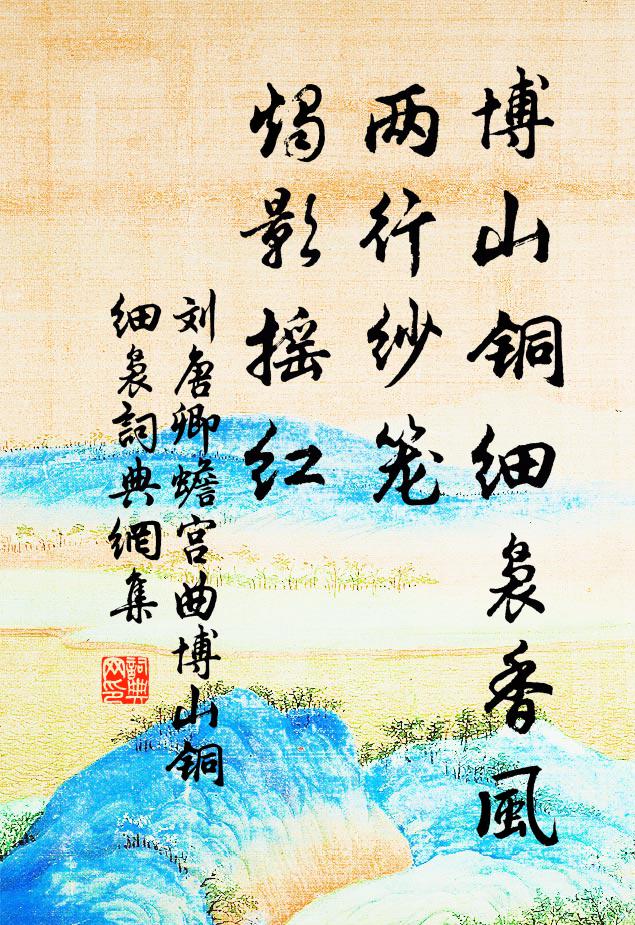 博山铜细袅香风
两行纱笼
烛影摇红
刘唐卿蟾宫曲博山铜
细袅詞典網集
詞典
网印